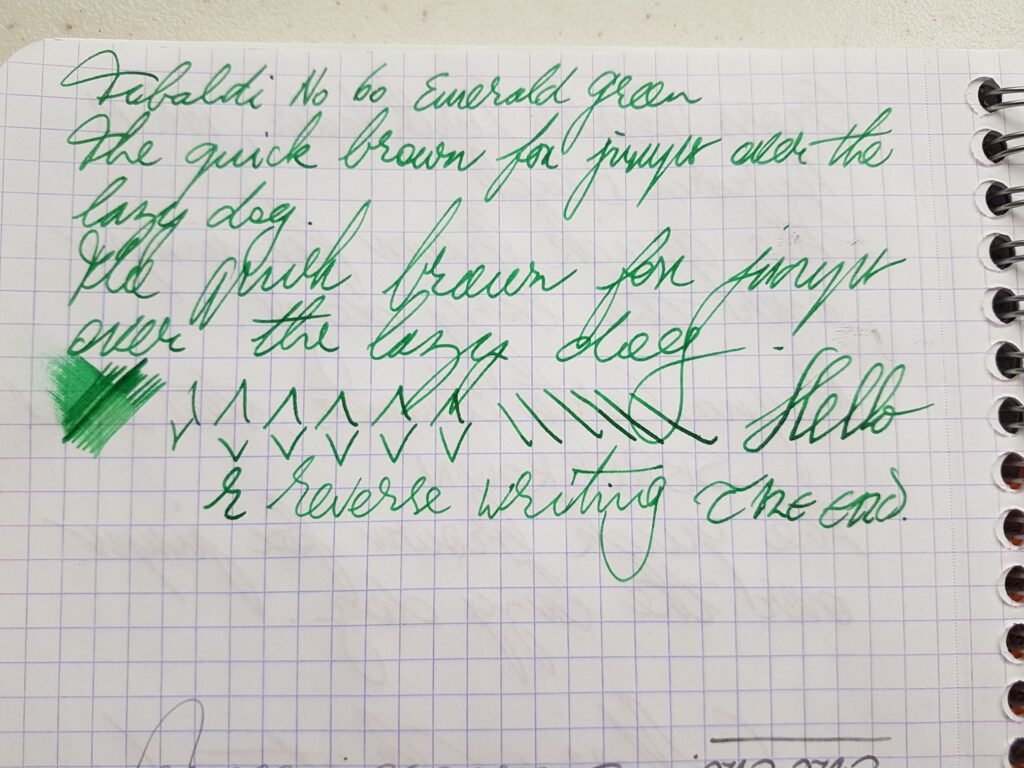 Tibaldi No 60 Emerald green
The quick brown fox jumps over the
lazy dog.
The quick brown fox jumps
over the lazy dog.
Hello
r reverse writing THE END.